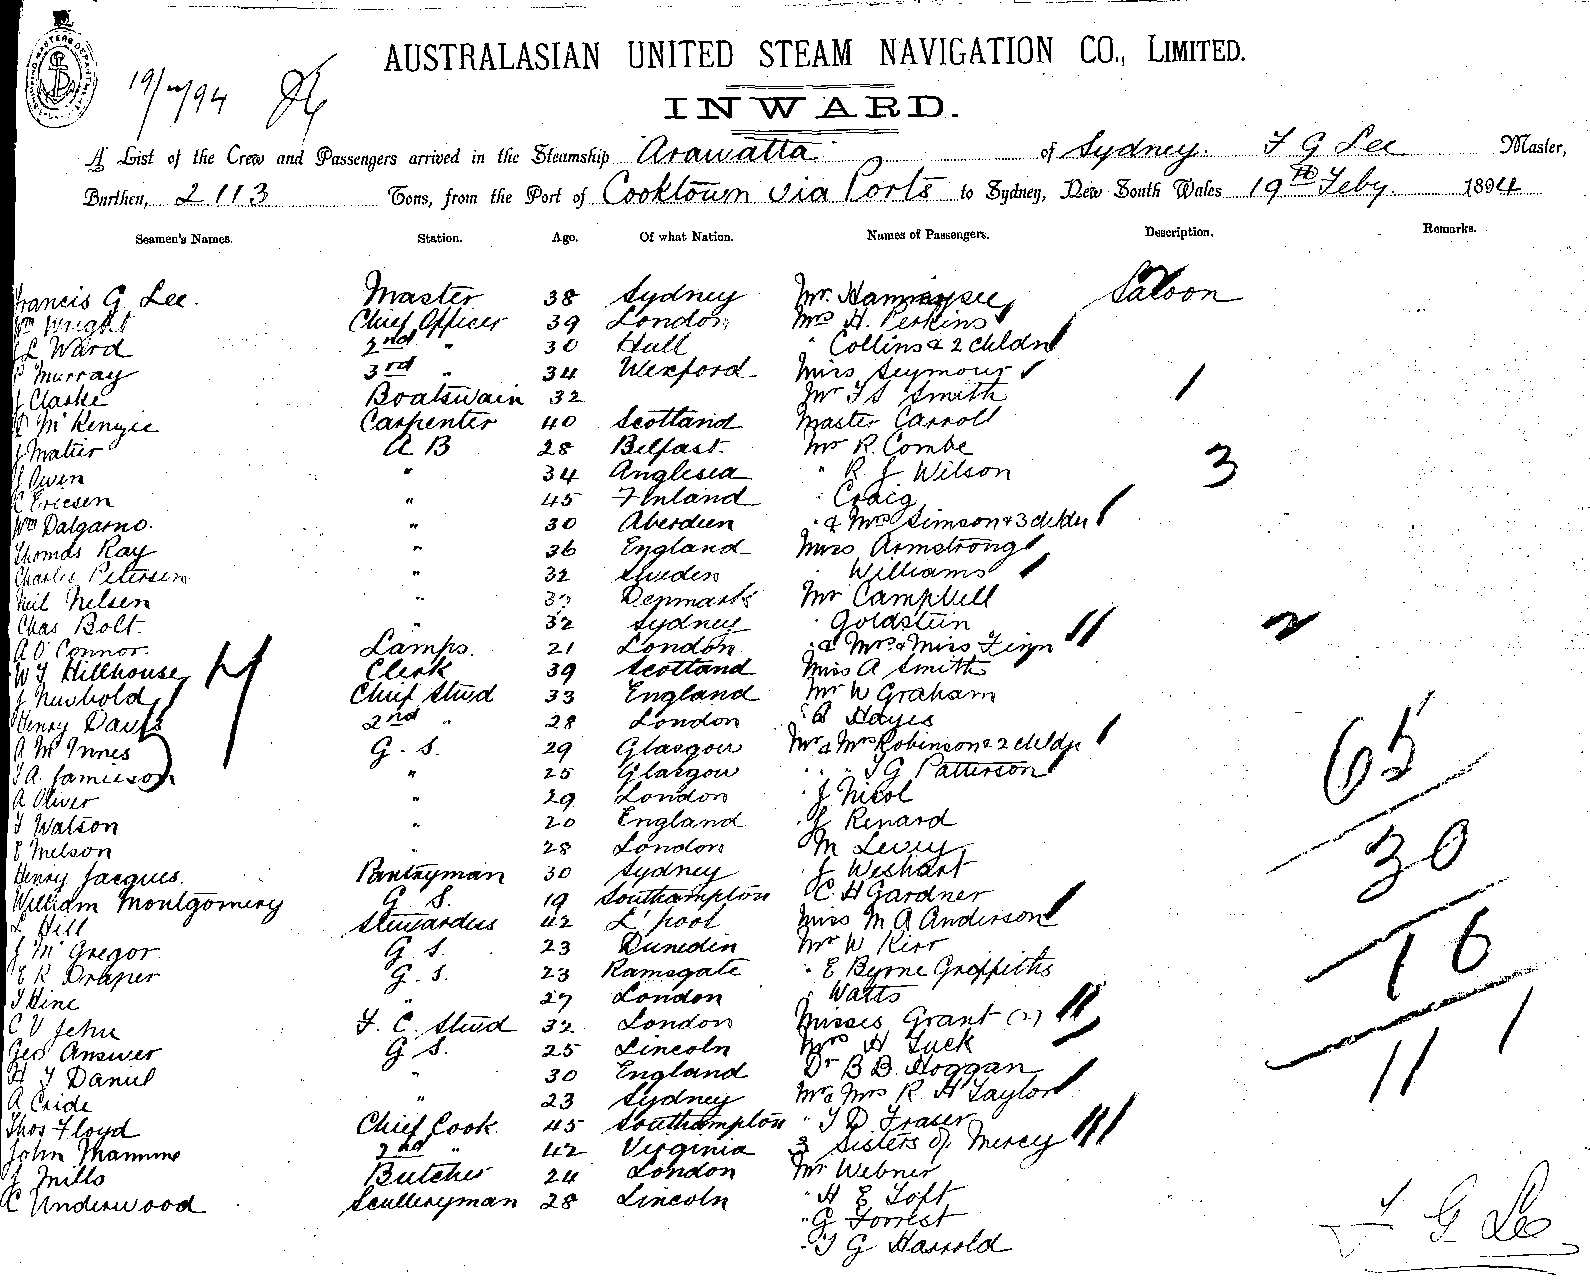 AUSTRALASIAN UNITED STEAM NAVIGATION CO., LIMITED.
19/2/94
INWARD.
A List of the Crew and Passengers arrived in the Steamship Arawatta of Sydney. F G Lee Master,
Burthen, 2113 Tons, from the Port of Cooktown via Ports to Sydney, New South Wales 19th Feby. 1894
Seamen's Names. Station. Age. Of what Nation. Names of Passengers. Description. Remarks.
Francis G Lee. Master 38 Sydney Mr. Saloon
Wm Wright Chief Officer 39 London Mrs H. Perkins
J L Ward 2nd " 30 Hull " Collins & 2 childn
P Murray 3rd " 34 Wexford Miss Seymour
J Clarke Boatswain 32 Mr T S Smith 1
D McKenzie Carpenter 40 Scotland Master Carroll
J Matier A B 28 Belfast. Mr R. Combe
J Owen " 34 Anglesea " R J Wilson 3
C Ericsen " 45 Finland " Craig
Wm Dalgarno. " 30 Aberdeen " & Mrs Simson & 3 childn
Thomas Ray " 36 England Miss Armstrong
Charles Petersen " 32 Sweden " Williams
Neil Nelsen " Denmark Mr Campbell
Chas Bolt. " 32 Sydney " Goldstein 2
A O'Connor. Lamps. 21 London " & Mrs & Miss
W J Hillhouse Clerk 39 Scotland Miss A Smith
J Newbold Chief Stwd 33 England Mr W Graham
Henry Davis 2nd " 28 London " A Hayes
A McInnes G. S. 29 Glasgow Mr & Mrs Robinson & 2 childn 65
J A. Jamieson " 25 Glasgow " " " T G Patterson
A Oliver " 29 London " J Nicol
J Watson " 20 England " J Renard 30
E Melson " 28 London " M Levey
Henry Jacques. Pantryman 30 Sydney " J Weshart
William Montgomery G S. 19 Southampton " C H Gardner
L Hill Stewardess 42 L'pool Miss M A Anderson
J McGregor G S. 23 Dunedin Mr W Kerr 16
E R Draper G. S. 23 Ramsgate " E Byrne Griffiths
J Hine " 27 London " Watts
C V John F. C. Stwd 32 London Misses Grant (2)
Geo Answer G S. 25 Lincoln Mrs H Luck
H J Daniel " 30 England Dr B B. Hoggan 111
A Cride " 23 Sydney Mr & Mrs R. H Taylor
Thos Floyd Chief Cook. 45 Southampton " T D Fraser
John 2nd " 42 Virginia 3 Sisters of Mercy
J Mills Butcher 24 London Mr Webner
C Underwood Sculleryman 28 Lincoln " H E Toft
" G Forrest
" T G Harrold
F G Lee